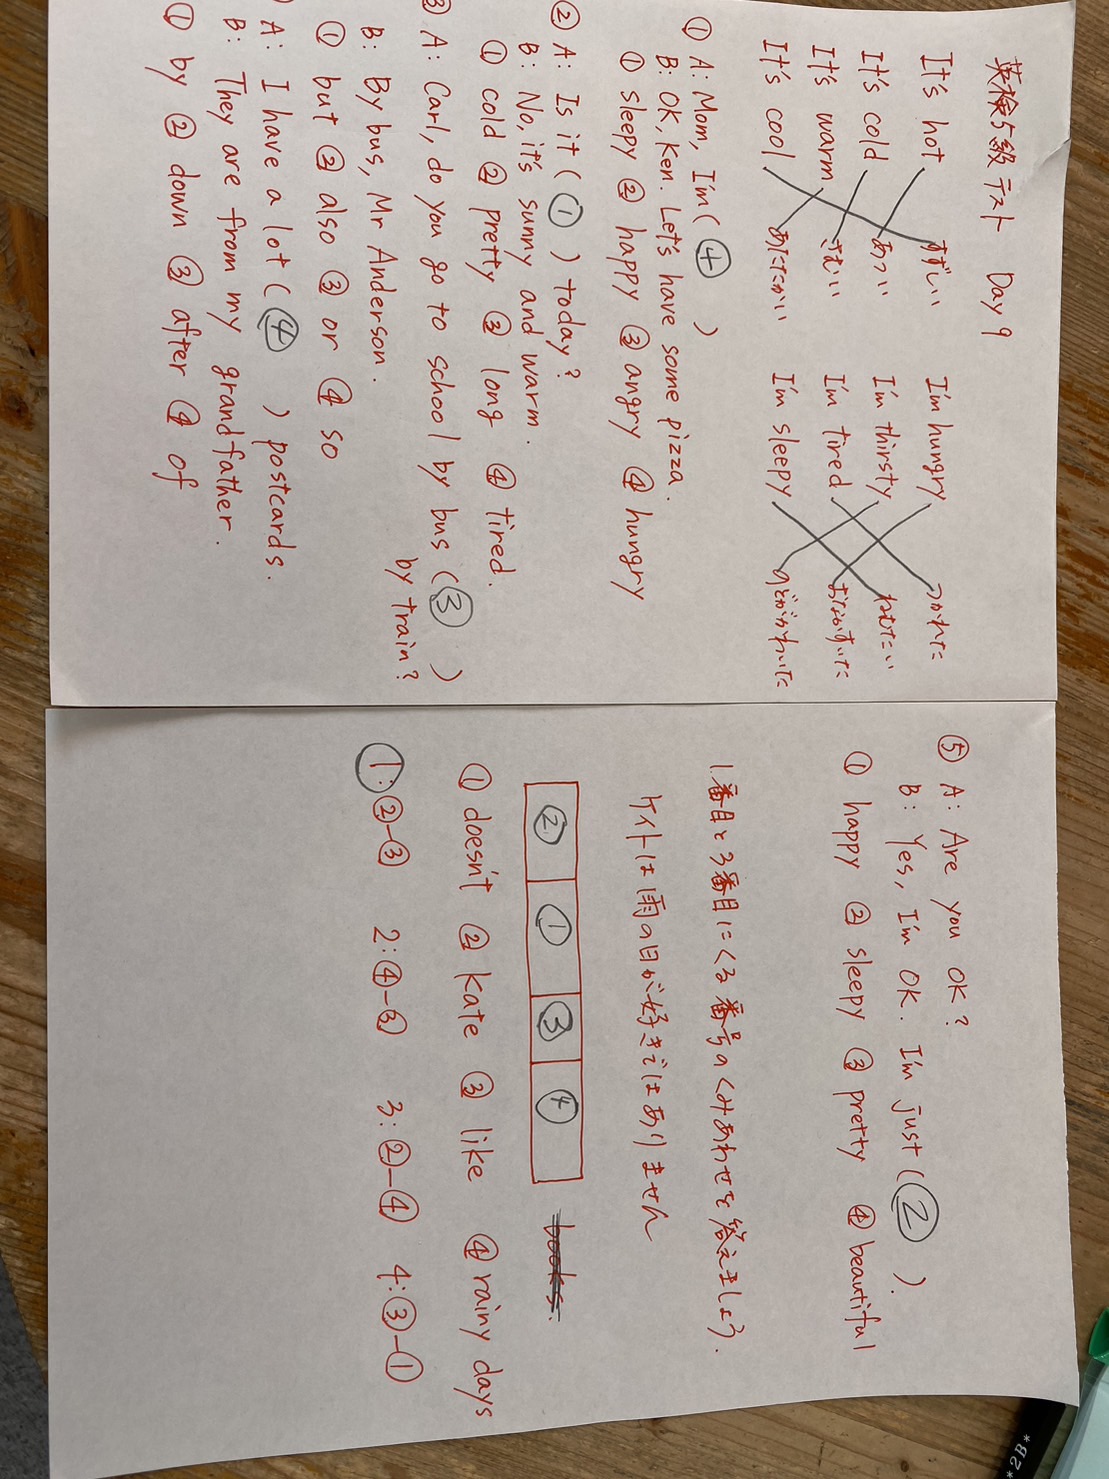 英検5級テスト Day 9
It's hot すずしい I'm hungry つかれた
It's cold あつい I'm thirsty ねむたい
It's warm さむい I'm tired おなかすいた
It's cool あたたかい I'm sleepy のどがかわいた
① A: Mom, I'm ( ④ )
B: OK, Ken. Let's have some pizza.
① sleepy ② happy ③ angry ④ hungry
② A: Is it ( ① ) today?
B: No, it's sunny and warm.
① cold ② pretty ③ long ④ tired.
③ A: Carl, do you go to school by bus ( ③ )
by train?
B: By bus, Mr Anderson.
① but ② also ③ or ④ so
A: I have a lot ( ④ ) postcards.
B: They are from my grandfather.
① by ② down ③ after ④ of
⑤ A: Are you OK?
B: Yes, I'm OK. I'm just ( ② ).
① happy ② sleepy ③ pretty ④ beautiful
1番目と3番目にくる番号のくみあわせを答えましょう.
ケイトは雨の日が好きではありません
② ① ③ ④ books.
① doesn't ② kate ③ like ④ rainy days
1:②-③ 2:④-③ 3:②-④ 4:③-①
*2B*